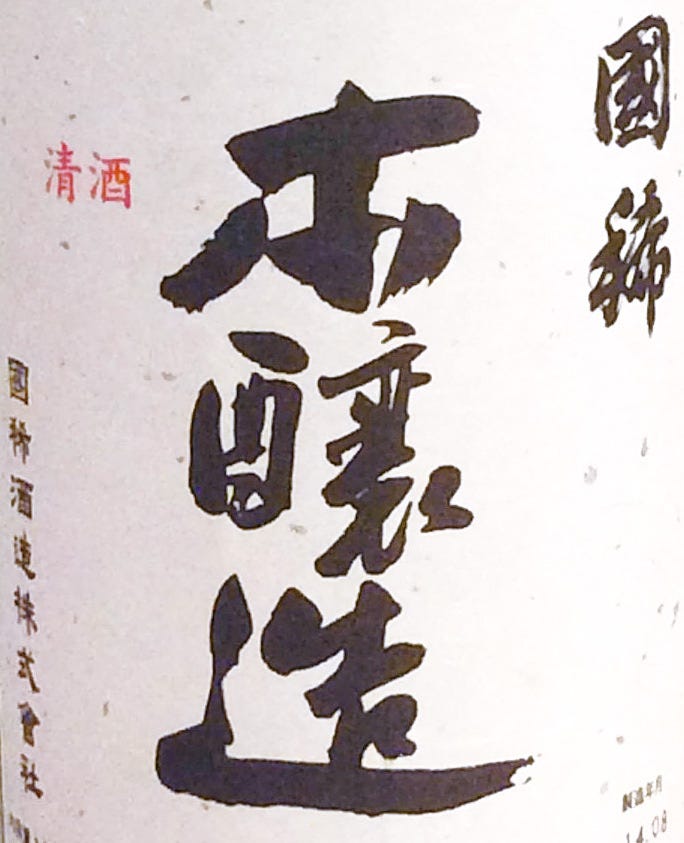 國稀
本醸造
清酒
國稀酒造株式會社
製造年月
14.08